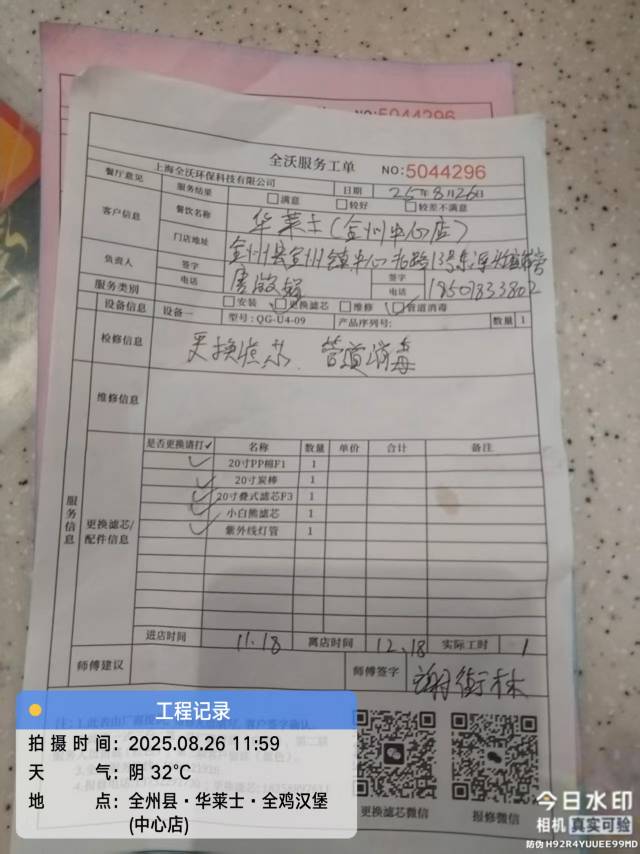 NO:5044296
全沃服务工单 NO:5044296
上海全沃环保科技有限公司
餐厅意见 服务结果 满意 较好 较差不满意 日期 25年8月26日
客户信息 餐饮名称 华莱士(全州中心店)
门店地址 全州县全州镇中心北路13号
负责人 签字 签字
电话 电话 18507833802
服务类别 安装 更换滤芯 维修 管道消毒
设备信息 设备一 型号:QG-U4-09 产品序列号: 数量 1
检修信息 更换滤芯、管道消毒
维修信息
服务信息 更换滤芯/配件信息
是否更换请打✓ 名称 数量 单价 合计 备注
✓ 20寸PP棉F1 1
✓ 20寸炭棒 1
✓ 20寸叠式滤芯F3 1
✓ 小白熊滤芯 1
✓ 紫外线灯管 1
进店时间 11.18 离店时间 12.18 实际工时 1
师傅建议 师傅签字 谢衡林
更换滤芯微信 报修微信
工程记录
拍摄时间: 2025.08.26 11:59
天气: 阴 32℃
地点: 全州县·华莱士·全鸡汉堡
(中心店)
今日水印
相机 真实可验
防伪 H92R4YUUEE99MD